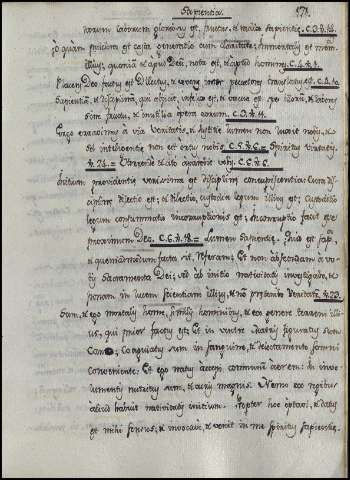 Sapientia. 171.
rorum laborum gloriosus est fructus, & radix sapientiæ. C.3.
O quàm pulchra est casta generatio cum claritate: immortalis est mem.
illius: quoniam & apud Deū nota est, & apud homines. C.4. v.1.
Placens Deo factus est dilectus, & vivens inter peccatores translatus est. C.4.
Sapientiam, & disciplinā qui abjicit, infelix est, & vacua est spes illorū, & labores
sine fructu, & inutilia opera eorum. C.3. v.11.
Ergo erravimus a via veritatis, & justitiæ lumen non luxit nobis, & sol
intelligentiæ non est ortus nobis. C.5. v.6. =
C.6.
Initium verissima est disciplinæ concupiscentia: Cura disciplinæ
dilectio est; & dilectio, custodia legum illius est; custoditio
legum consummatio incorruptionis est; incorruptio facit esse
proximum Deo. C.6. v.18. = Quid est sapā,
& quemadmodum facta sit, referam; Et non abscondam à vobis
Sacramenta Dei; sed ab initio nativitatis investigabo, &
ponam in lucem scientiam illius, & nō præteribo veritatē.
Sum & ego mortalis homo, similis hominibus, & ex genere terreni illius,
qui prior factus est; Et in ventre matris figuratus sum
Caro; coagulatus sum in sanguine, & delectamento somni
conveniente: Et ego natus accepi communem aerem: In involumentis
nutritus sum, & curis magnis. Nemo ex regibus
aliud habuit nativitatis initium. Propter hoc optavi, & datus
est mihi sensus; & invocavi, & venit in me spiritus sapientiæ.